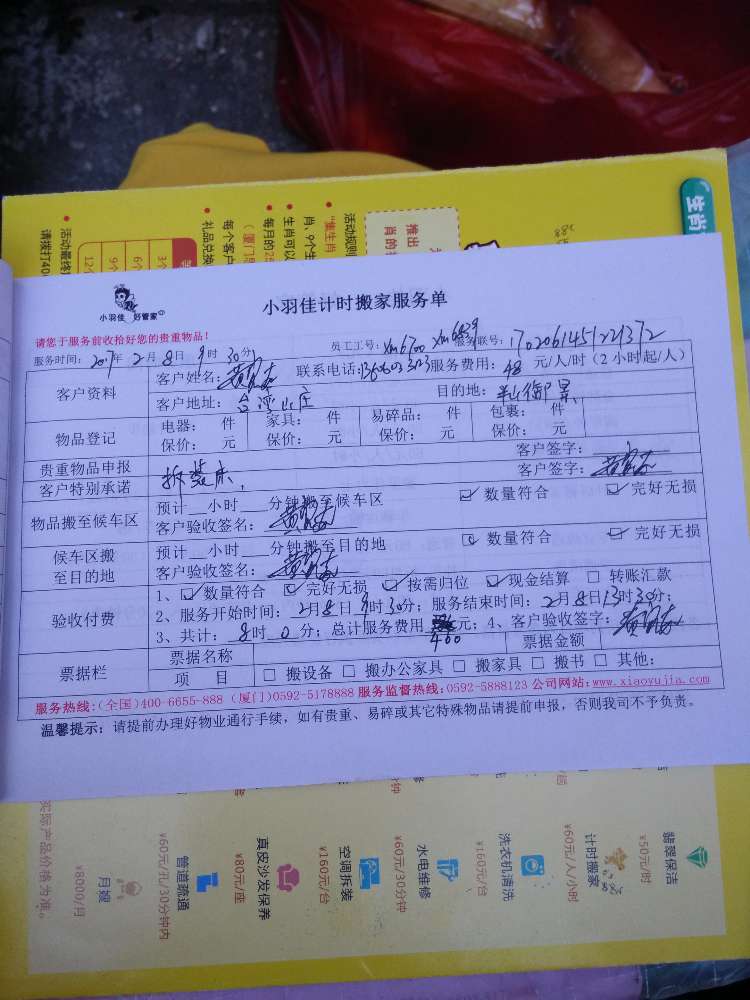 生肖
推出
肖的
活动规则
"集生肖
肖、9个生
生肖可以
每月的25
(厦门
每个客户
礼品兑换
活动最终
请拨打40
3个
6个
9个
12个
小羽佳 好管家
小羽佳计时搬家服务单
请您于服务前收拾好您的贵重物品!
员工工号: xm6700 xm6839 服务联号: 1702061451221372
服务时间: 2017年 2月 8日 9时 30分
客户资料 客户姓名: 联系电话: 服务费用: 48 元/人/时(2小时起/人)
客户地址: 台湾山庄 目的地: 半山御景
物品登记 电器: 件 家具: 件 易碎品: 件 包裹: 件
保价: 元 保价: 元 保价: 元 保价: 元
贵重物品申报 客户签字:
客户特别承诺 拆装床, 客户签字:
物品搬至候车区 预计__小时___分钟搬至候车区 ☑ 数量符合 ☑ 完好无损
客户验收签名:
候车区搬至目的地 预计__小时___分钟搬至目的地 ☑ 数量符合 ☑ 完好无损
客户验收签名:
验收付费 1、☑ 数量符合 ☑ 完好无损 ☑ 按需归位 ☑ 现金结算 □ 转账汇款
2、服务开始时间: 2月8日 9时30分; 服务结束时间: 2月8日13时30分;
3、共计: 8时 0分; 总计服务费用 400 元; 4、客户验收签字:
票据栏 票据名称 票据金额
项 目 □ 搬设备 □ 搬办公家具 □ 搬家具 □ 搬书 □ 其他:
服务热线:(全国)400-6655-888 (厦门)0592-5178888 服务监督热线:0592-5888123 公司网站:www.xiaoyujia.com
温馨提示: 请提前办理好物业通行手续,如有贵重、易碎或其它特殊物品请提前申报,否则我司不予负责。
翡翠保洁
¥50元/时
计时搬家
¥60元/人/小时
洗衣机清洗
¥160元/台
水电维修
¥60元/30分钟
空调拆装
¥160元/台
真皮沙发保养
¥80元/座
管道疏通
¥60元/孔/30分钟内
月嫂
¥8000/月
实际产品价格为准。